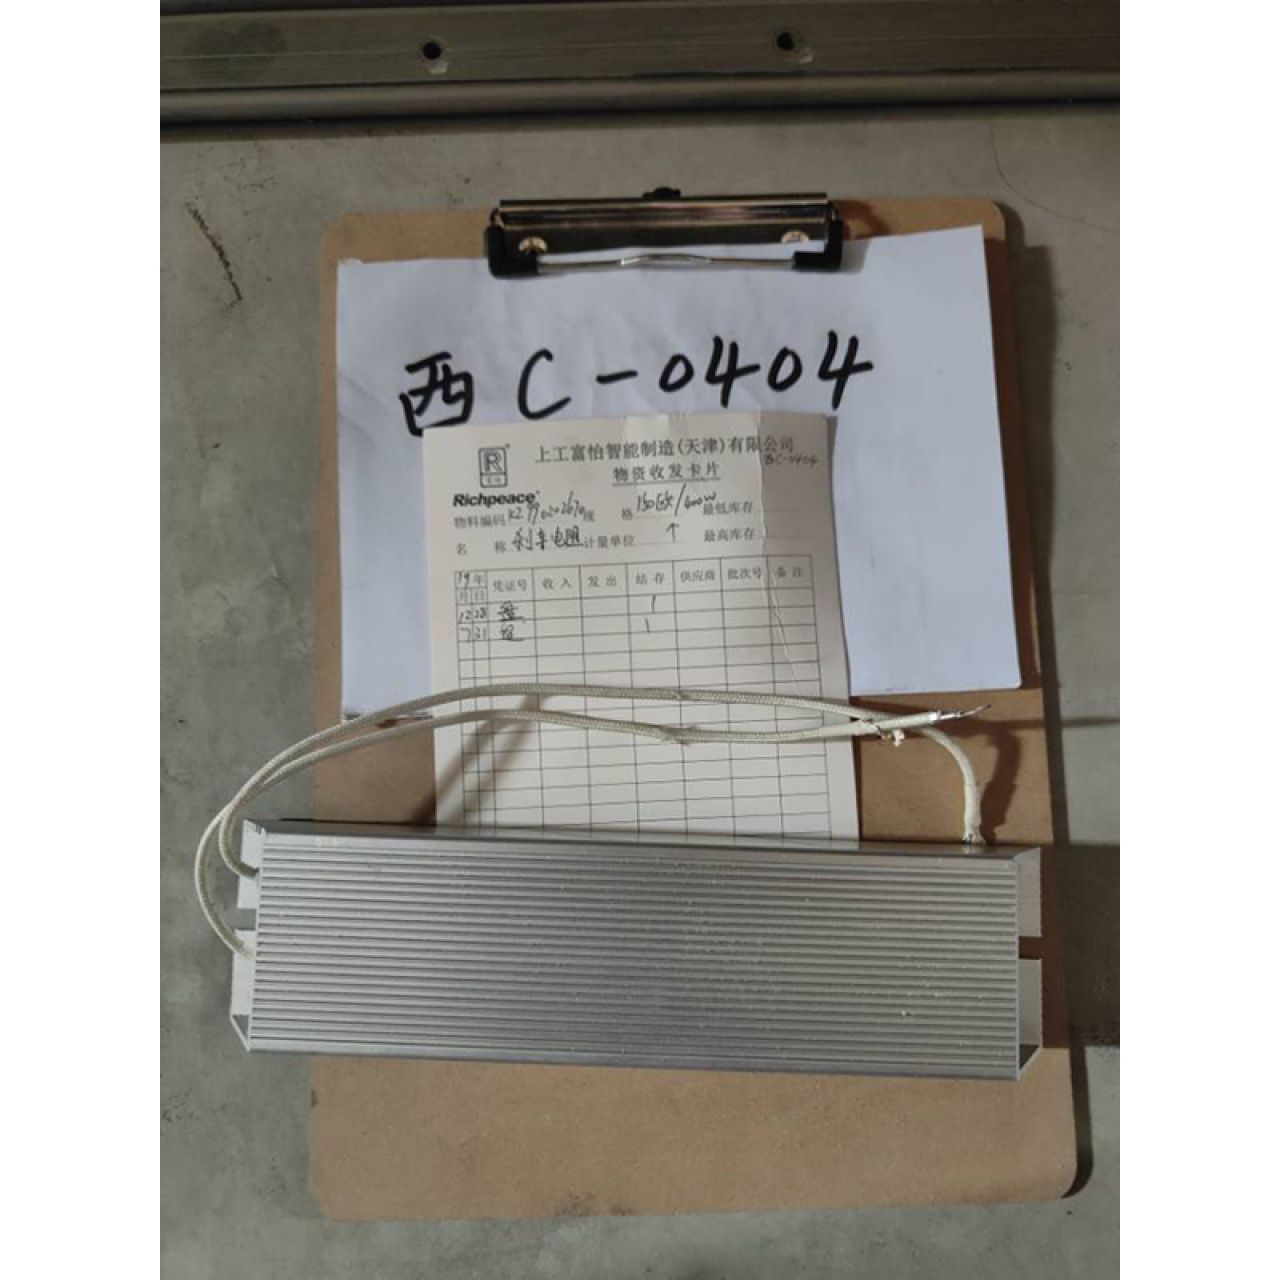 西 C-0404
R
上工富怡智能制造(天津)有限公司
西C-0404
物资收发卡片
Richpeace
物料编码 规 格 150欧/400W 最低库存
名 称 刹车电阻 计量单位 个 最高库存
19年 凭证号 收入 发出 结存 供应商 批次号 备注
月 日
12 28 盘 1
7 31 1